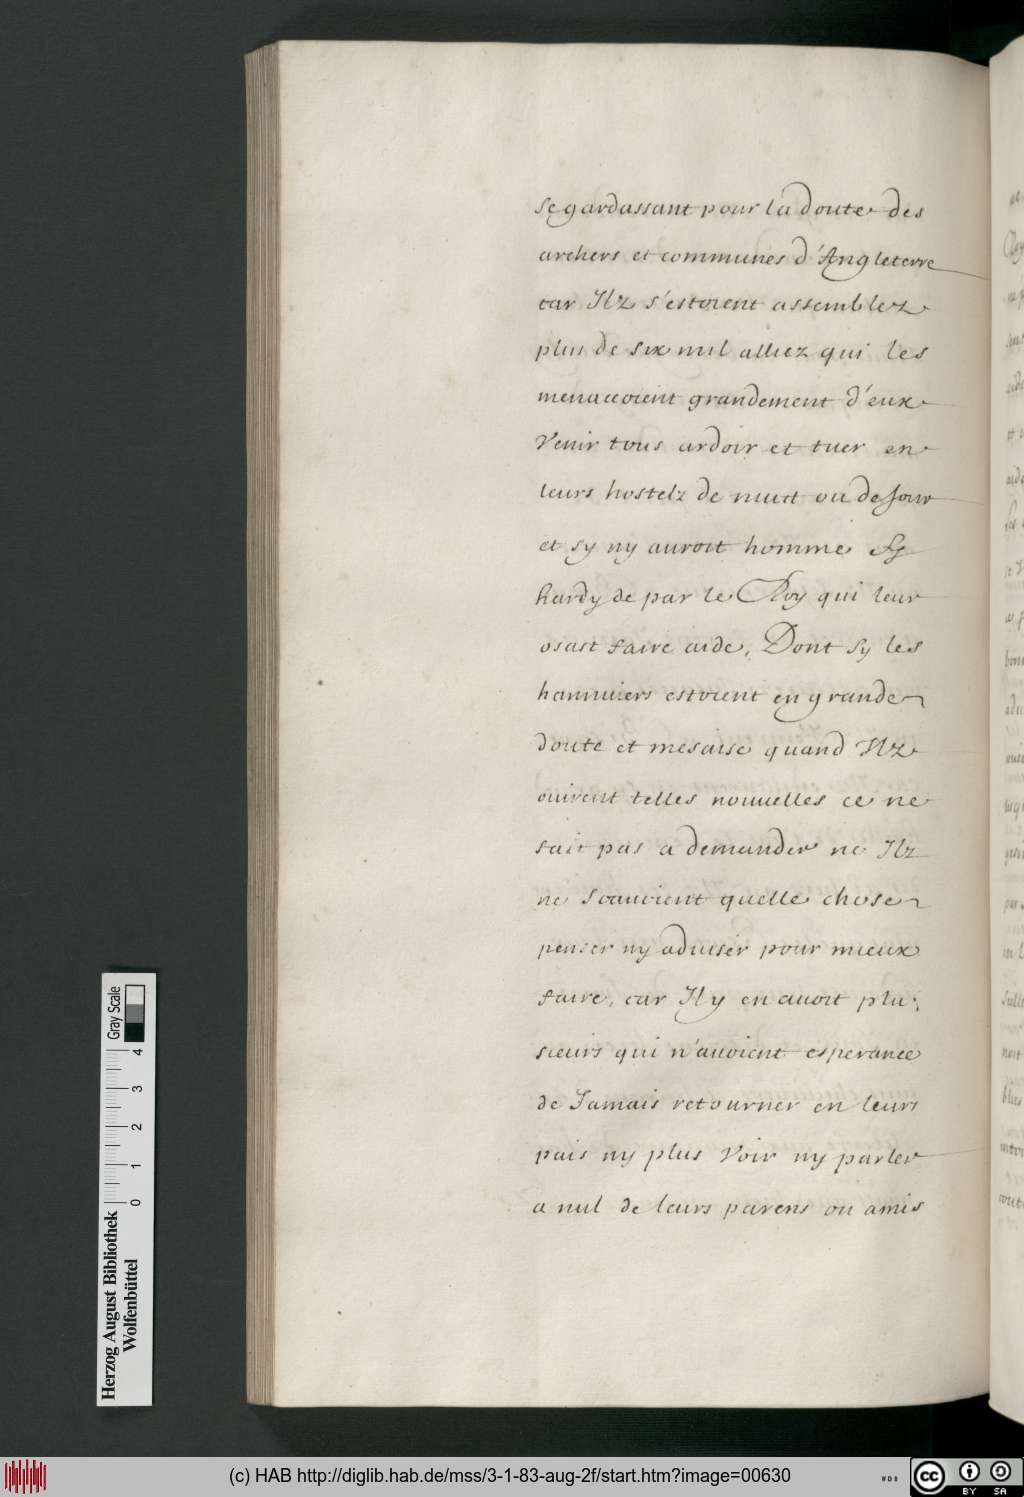 se gardassant pour la doute des
archers et communes d'Angleterre
car Ilz s'estoient assemblez
plus de six mil alliez qui les
menaccoient grandement d'eux
Venir tous ardoir et tuer en
leurs hostelz de nuict ou de Jour
et sy ny auroit homme sy
hardy de par le Roy qui leur
osast faire aide, Dont sy les
hannuiers estoient en grande
doute et mesaise quand Ilz
ouirent telles nouuelles ce ne
fait pas a demander ne Ilz
ne scauoient quelle chose
penser ny aduiser pour mieux
faire, car Il y en auoit plu:
sieurs qui n'auoient esperance
de Jamais retourner en leurs
pais ny plus Voir ny parler
a nul de leurs parens ou amis
Gray Scale
0 1 2 3 4
Herzog August Bibliothek
Wolfenbüttel
(c) HAB http://diglib.hab.de/mss/3-1-83-aug-2f/start.htm?image=00630
cc BY SA